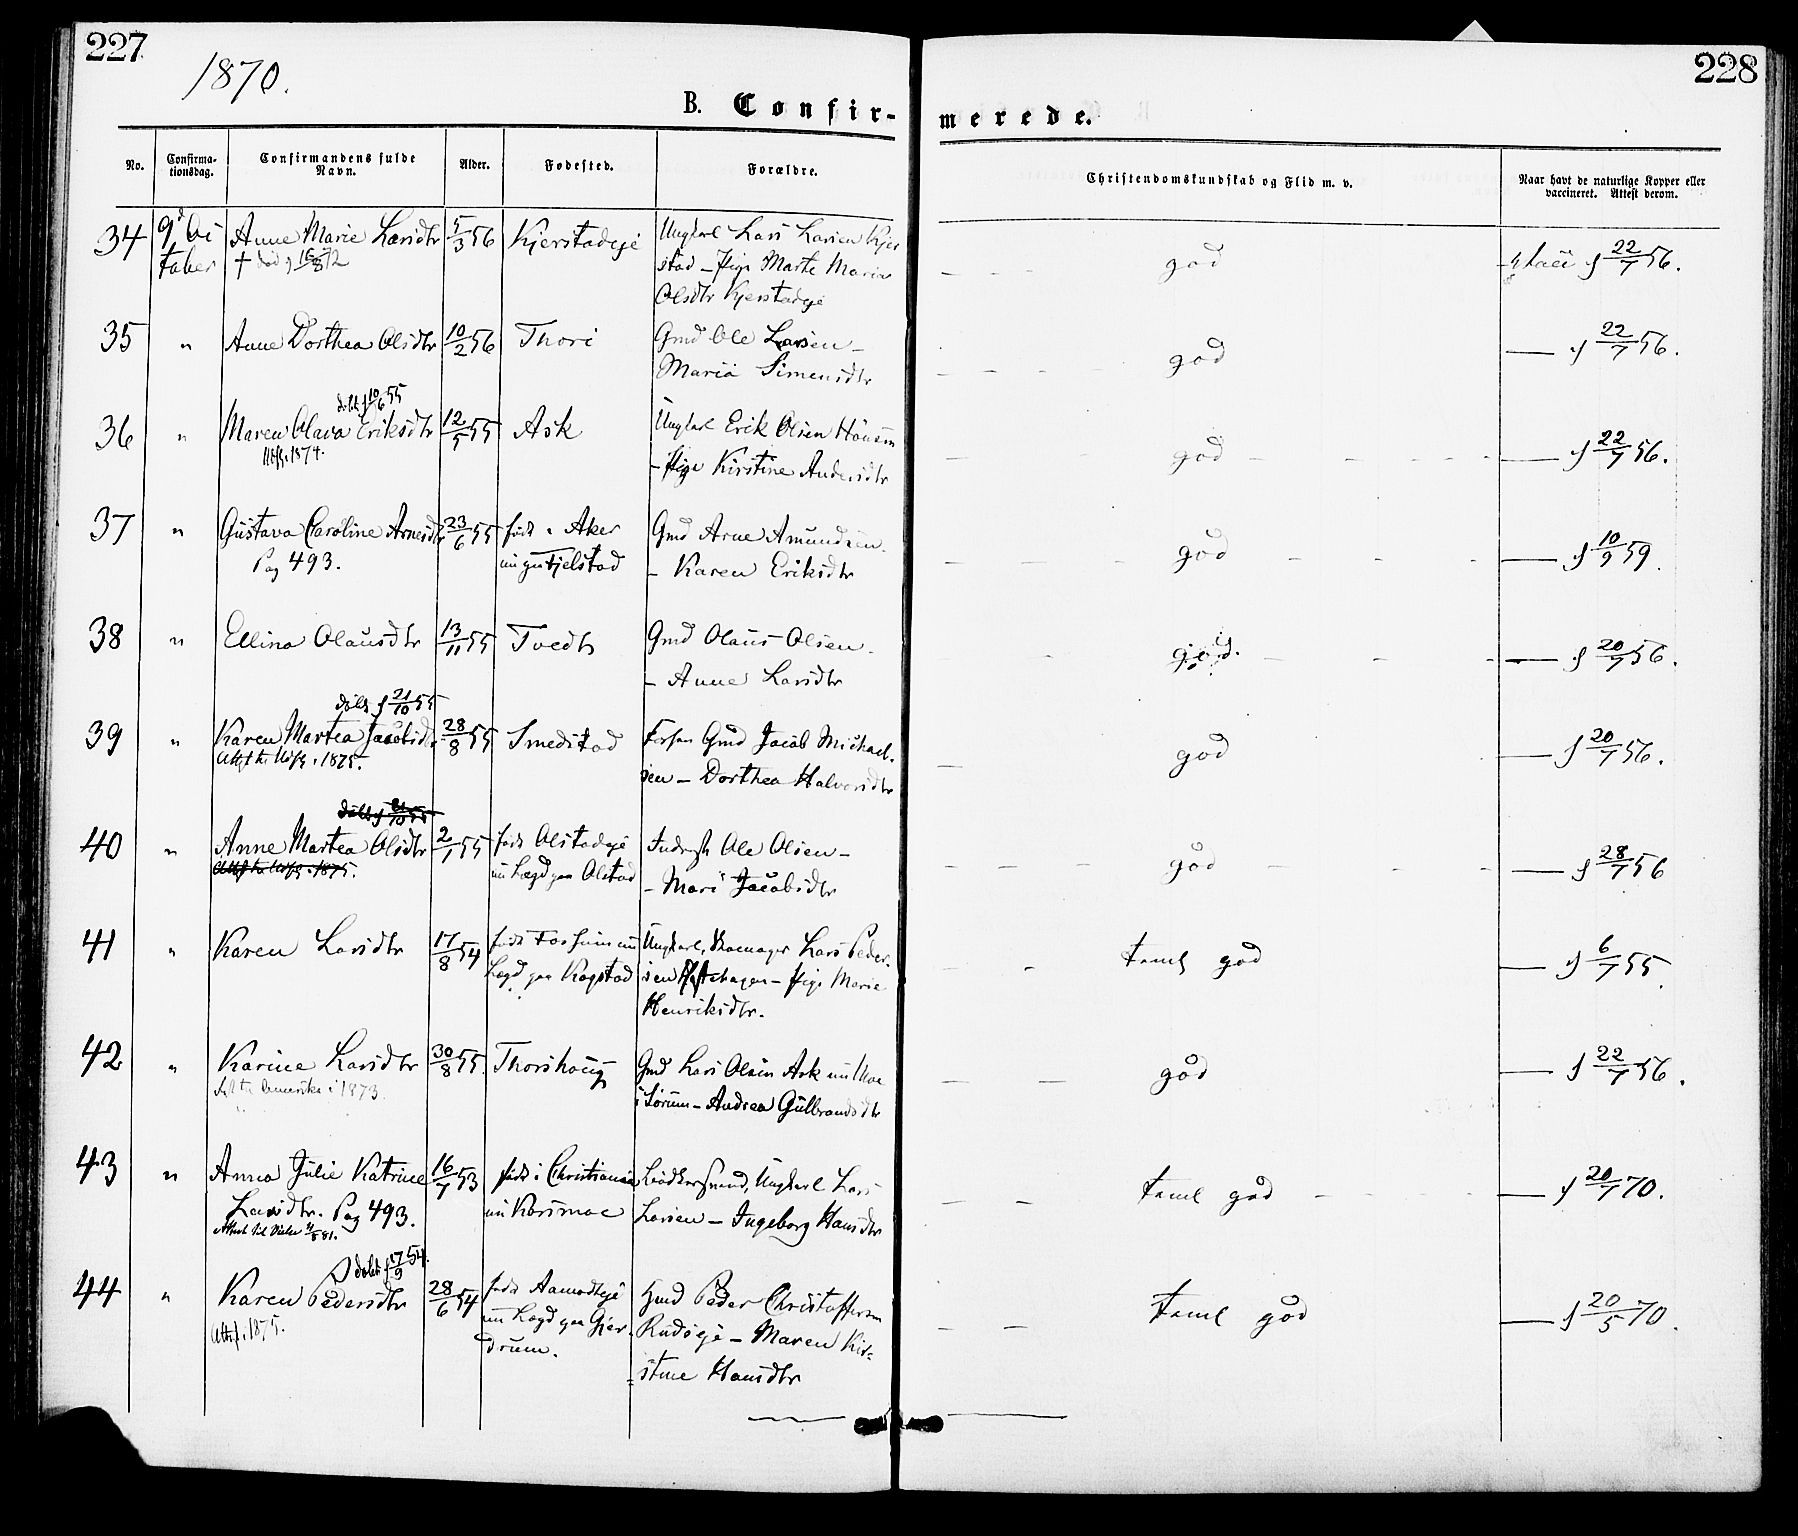 227
1870.
228
B. Confir-
merede.
No.
Confirma-
tionsdag.
Confirmandens fulde
Navn.
Alder.
Fødested.
Forældre.
Christendomskundskab og Flid m. v.
Naar havt de naturlige Kopper eller
vaccineret. Attest derom.
34 9d Oc Anne Marie Larsdtr 5/3 56 Kjerstadeje Ungkarl Lars Larsen Kjer god 22/7 56.
tober † død stad – Pige Marte Maria
Olsdtr Kjerstadeje
35 " Anne Dorthea Olsdtr 10/2 56 Thori Gmd Ole Larsen – god — 22/7 56.
Maria Simensdtr
døbt 10/6 55
36 " Maren Olava Eriksdtr 12/5 55 Ask Ungkarl Erik Olsen god — 22/7 56.
1874. – Pige Kirstine Andersdtr
37 " Gustava Caroline Arnesdtr 23/6 55 født i Aker Gmd Arne Amundsen god — 10/9 59.
Pag 493. Fjelstad – Karen Eriksdtr
38 " Ellina Olausdtr 13/11 55 Tvedt Gmd Olaus Olsen god. — 20/7 56.
– Anne Larsdtr
døbt 21/10 55
39 " Karen Martea Jacobsdtr 28/8 55 Smedstad Gmd Jacob Michael- god — 20/7 56.
1875. sen – Dorthea Halvorsdtr
40 " Anne Martea Olsdtr 2/1 55 født Olstadeje Ole Olsen – god — 28/7 56
1875. nu Lægd paa Olstad – Mari Jacobsdtr
41 " Karen Larsdtr 17/8 54 født Fossum nu Ungkarl, Skomager Lars Peder- taml god — 6/7 55.
Lægd paa Kogstad sen – Pige Marie
Henriksdtr.
42 " Karine Larsdtr 30/8 55. Thorshaug Gmd Lars Olsen Ask nu Moe god — 22/7 56.
Amerika i 1873. i Sørum – Andrea Gulbrandsdtr
43 " Anna Julie Katrine 16/7 53 født i Christiania Ungkarl Lars taml god — 20/7 70.
Larsdtr. Pag 493. nu Korsmoe Larsen – Ingeborg Hansdtr
døbt 17/9 54.
44 " Karen Pedersdtr 28/6 54 født Aamodteje Gmd Peder Christoffersen taml god — 20/5 70.
1875. nu Lægd paa Gjer- Rudseje – Maren Kir-
drum. stine Hansdtr